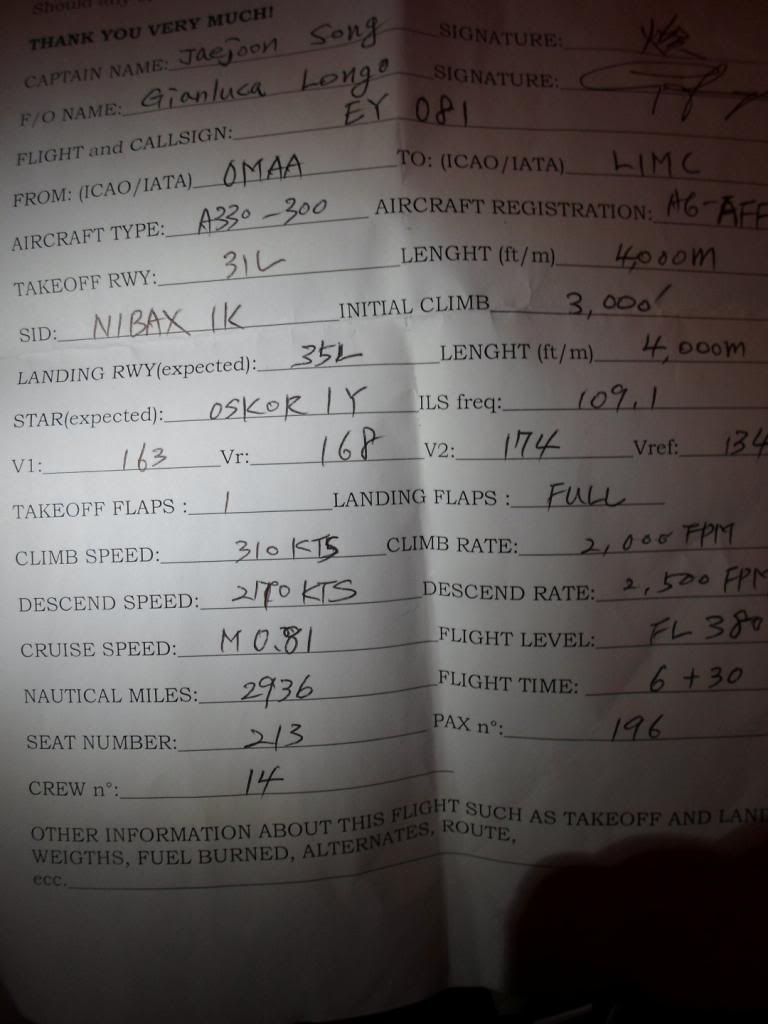 THANK YOU VERY MUCH!
CAPTAIN NAME: Jaejoon Song SIGNATURE:
F/O NAME: Gianluca Longo SIGNATURE:
FLIGHT and CALLSIGN: EY 081
FROM: (ICAO/IATA) OMAA TO: (ICAO/IATA) LIMC
AIRCRAFT TYPE: A330-300 AIRCRAFT REGISTRATION: A6-AFF
TAKEOFF RWY: 31L LENGHT (ft/m) 4,000M
SID: NIBAX 1K INITIAL CLIMB 3,000'
LANDING RWY(expected): 35L LENGHT (ft/m) 4,000m
STAR(expected): OSKOR 1Y ILS freq: 109.1
V1: 163 Vr: 168 V2: 174 Vref: 134
TAKEOFF FLAPS : 1 LANDING FLAPS : FULL
CLIMB SPEED: 310 KTS CLIMB RATE: 2,000 FPM
DESCEND SPEED: 270 KTS DESCEND RATE: 2,500 FPM
CRUISE SPEED: M 0.81 FLIGHT LEVEL: FL 380
NAUTICAL MILES: 2936 FLIGHT TIME: 6 + 30
SEAT NUMBER: 213 PAX n°: 196
CREW n°: 14
OTHER INFORMATION ABOUT THIS FLIGHT SUCH AS TAKEOFF AND LAND
WEIGTHS, FUEL BURNED, ALTERNATES, ROUTE,
ecc.